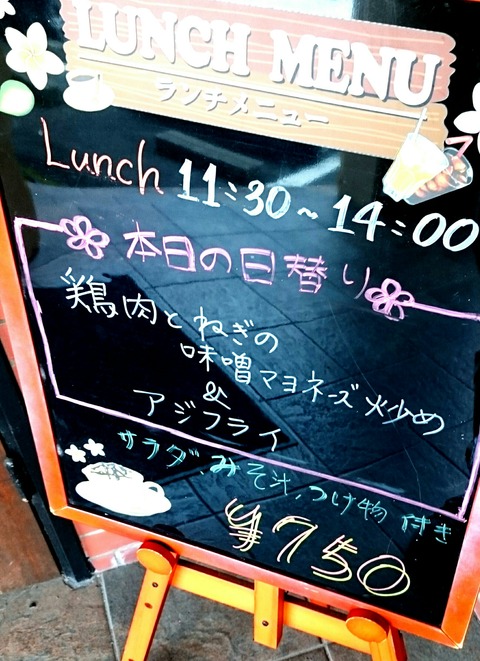 LUNCH MENU
ランチメニュー
Lunch 11:30~14:00
本日の日替り
鶏肉とねぎの
味噌マヨネーズ炒め
&
アジフライ
サラダ、みそ汁、つけ物付き
¥750